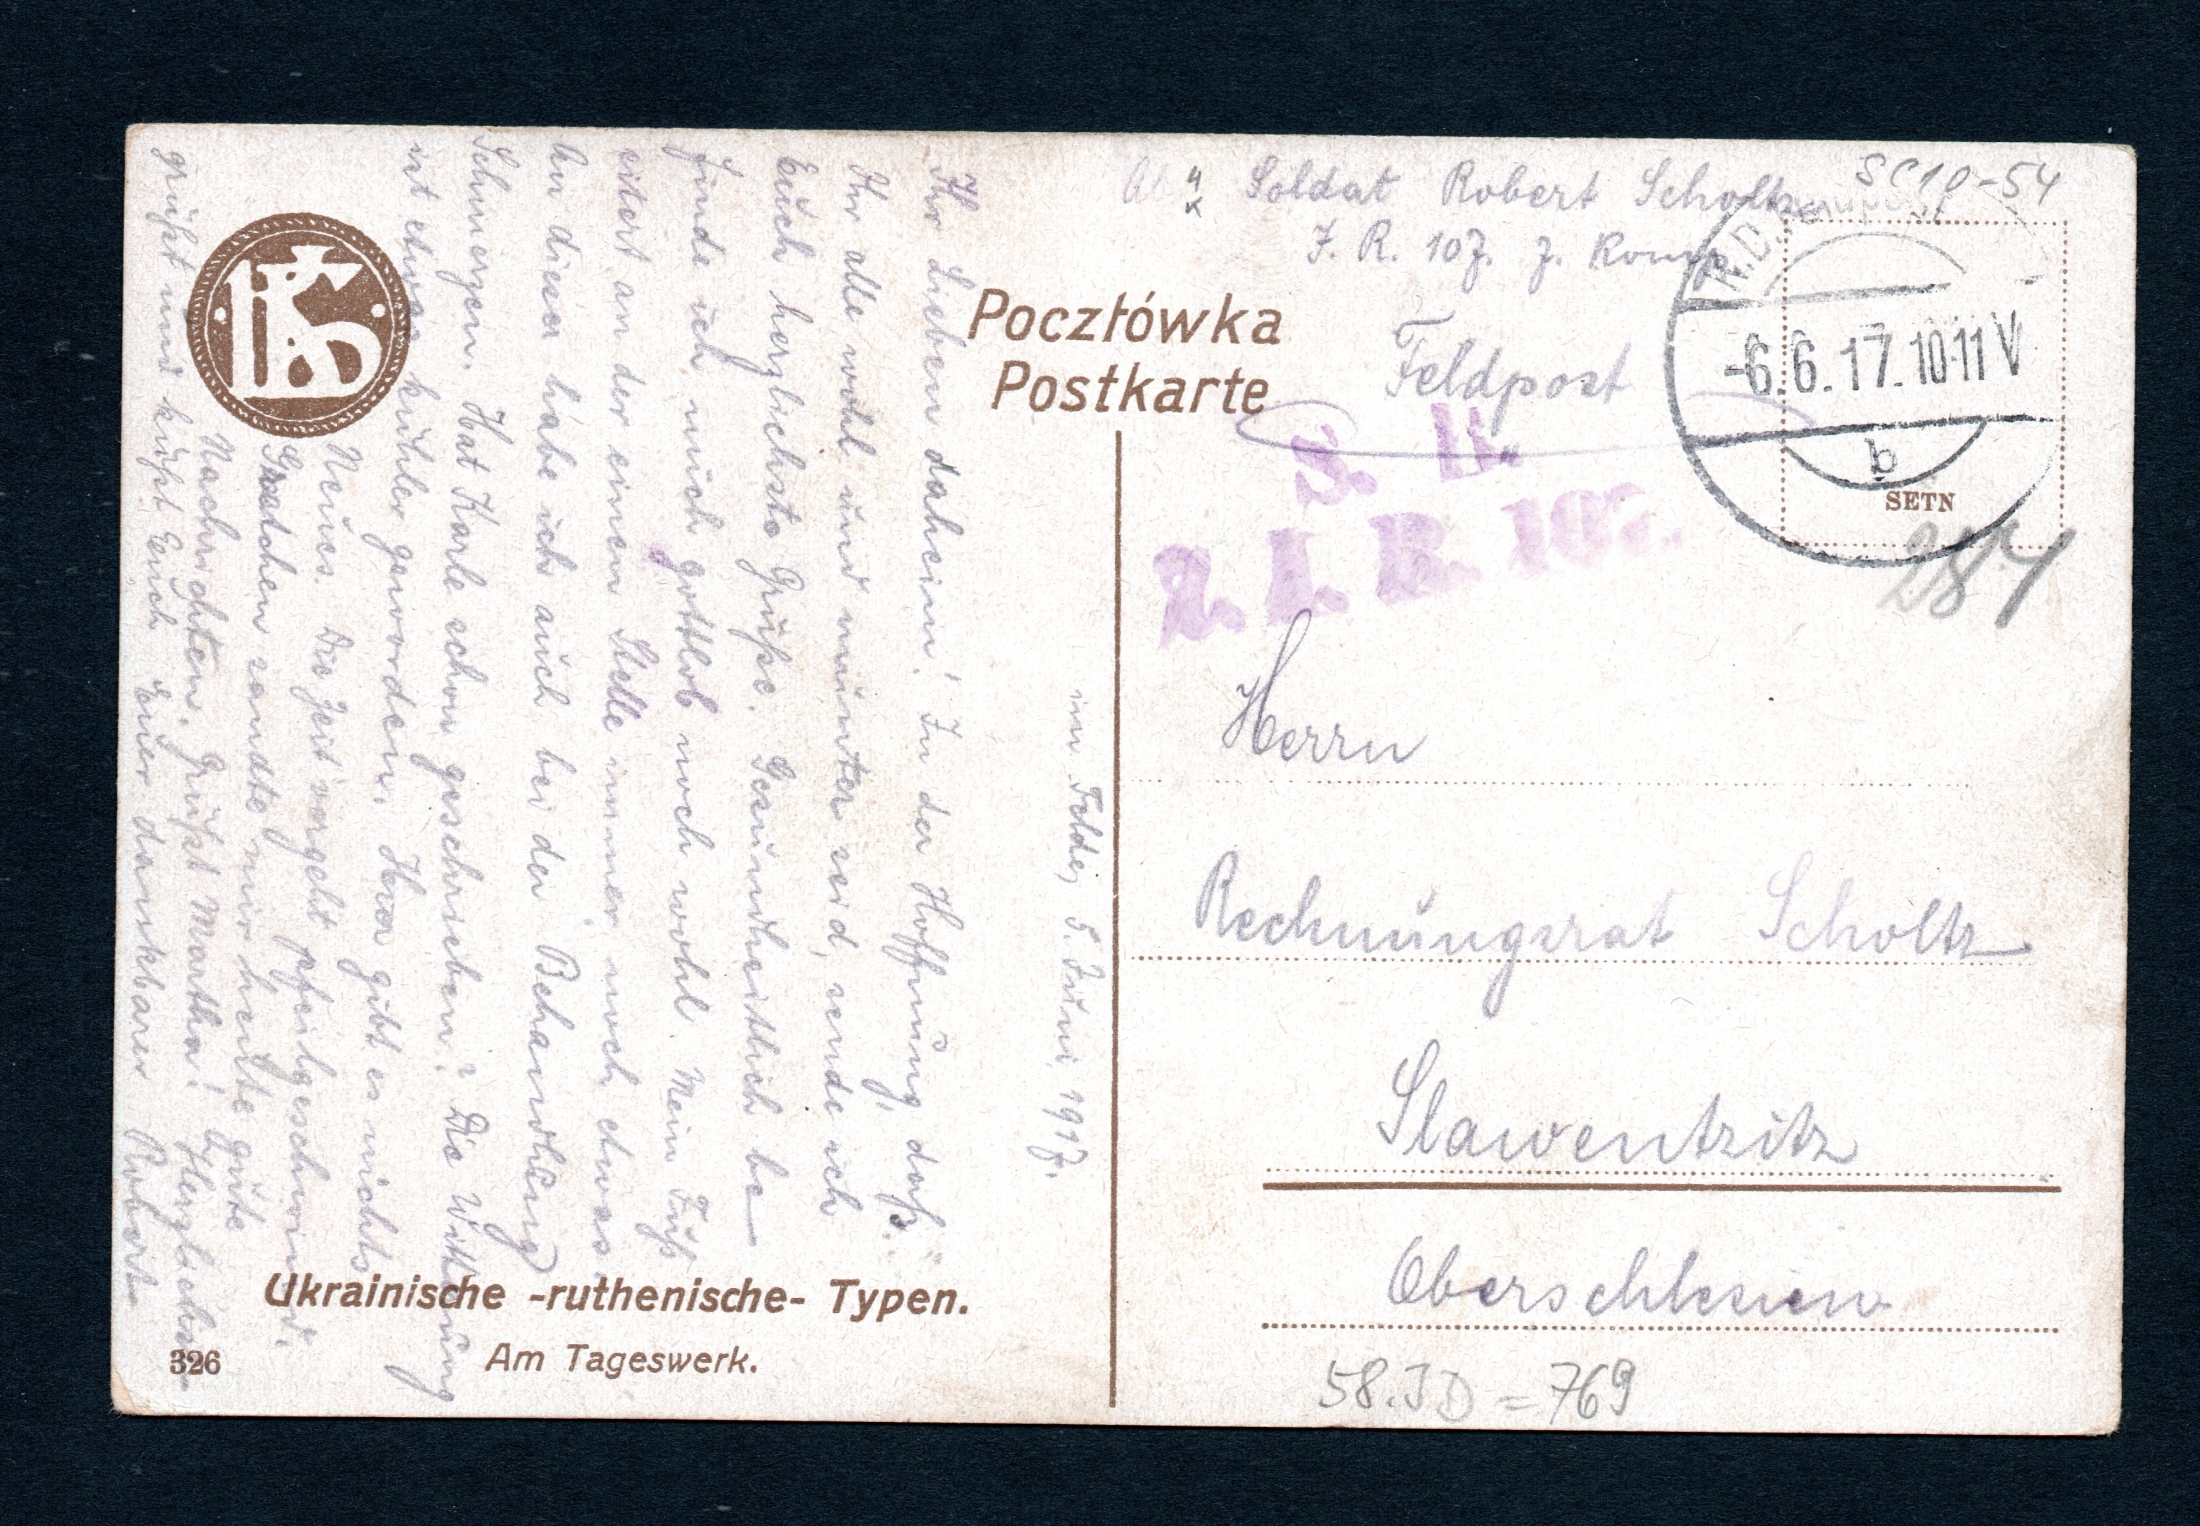 Soldat Robert Scholtz
I. R. 107. 7. Komp.
SC10-54
Poczłówka
Postkarte
Feldpost
-6.6.17.10-11 V
b
S. B.
2. I. R. 107.
SETN
Herrn
Rechnungsrat Scholtz
Slawentzitz
Oberschlesien
58.ID = 769
im Felde, 5. Juni 1917.
Ihr Lieben daheim! In der Hoffnung, daß
Ihr alle wohl und munter seid, sende ich
Euch herzlichste Grüße. Gesundheitlich be-
finde ich mich gottlob noch wohl. Mein Fuß
eitert an der einen Stelle immer noch etwas.
An dieser habe ich auch bei der Behandlung
Schmerzen. Hat Karle schon geschrieben? Die Witterung
ist etwas kühler geworden. Hier gibt es nichts
Neues. Die Zeit vergeht pfeilgeschwind.
Gretchen sandte mir heute gute
Nachrichten. Grüßt Martha! Herzlichst
grüßt und küßt Euch Euer dankbarer Robert.
Ukrainische -ruthenische- Typen.
Am Tageswerk.
326